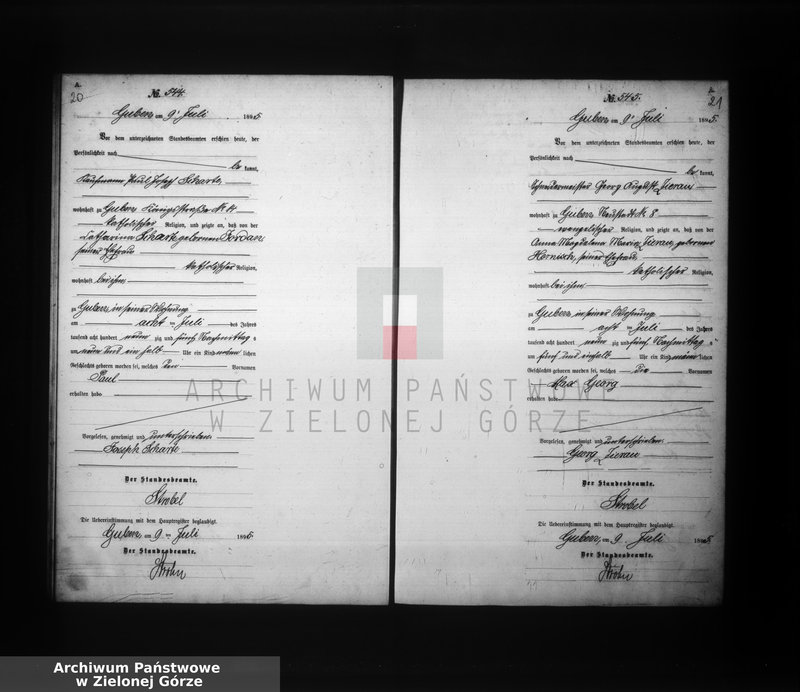 A.
20
№ 544.
Guben, am 9. Juli 1895
Vor dem unterzeichneten Standesbeamten erschien heute, der
Persönlichkeit nach
be kannt,
Kaufmann Paul Joseph Scharte
wohnhaft zu Guben Königsstraße № 4
katholischer Religion, und zeigte an, daß von der
Catharina Scharte gebornen Jordan
seiner Ehefrau
katholischer Religion,
wohnhaft bei ihm
zu Guben, in seiner Wohnung
am acht ten Juli des Jahres
tausend acht hundert neun zig und fünf Nachmittag s
um neun und ein halb Uhr ein Kind männ lichen
Geschlechts geboren worden sei, welches den Vornamen
Paul
erhalten habe
Vorgelesen, genehmigt und unterschrieben.
Joseph Scharte
Der Standesbeamte.
Strobel
Die Uebereinstimmung mit dem Hauptregister beglaubigt.
Guben, am 9 ten Juli 1895.
Der Standesbeamte.
A.
21
№ 545.
Guben, am 9. Juli 1895.
Vor dem unterzeichneten Standesbeamten erschien heute, der
Persönlichkeit nach
be kannt,
Schneidermeister Georg August Zierau
wohnhaft zu Guben Neustadt № 8
evangelischer Religion, und zeigte an, daß von der
Anna Magdalena Maria Zierau, gebornen
seiner Ehefrau,
katholischer Religion,
wohnhaft bei ihm
zu Guben in seiner Wohnung
am acht ten Juli des Jahres
tausend acht hundert neun zig und fünf Nachmittag s
um fünf und einhalb Uhr ein Kind männ lichen
Geschlechts geboren worden sei, welches die Vornamen
Max Georg
erhalten habe
Vorgelesen, genehmigt und unterschrieben.
Georg Zierau
Der Standesbeamte.
Strobel
Die Uebereinstimmung mit dem Hauptregister beglaubigt.
Guben, am 9. Juli 1895
Der Standesbeamte.
ARCHIWUM PAŃSTWOWE
W ZIELONEJ GÓRZE
Archiwum Państwowe
w Zielonej Górze